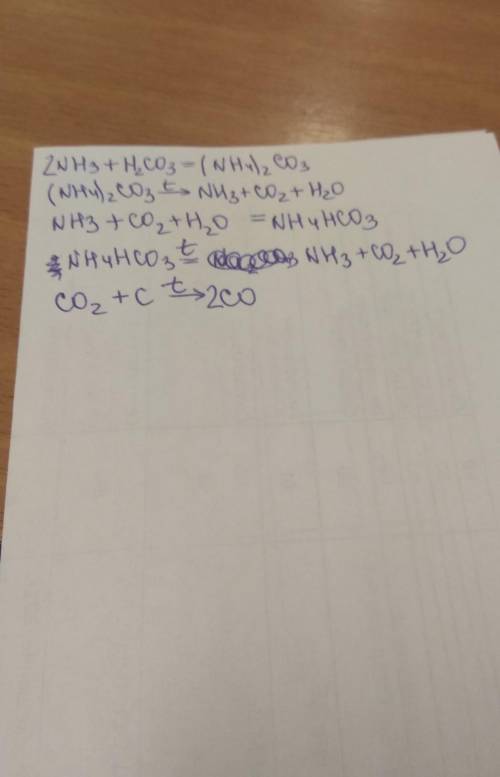 2NH3 + H2CO3 = (NH4)2CO3
(NH4)2CO3 t→ NH3 + CO2 + H2O
NH3 + CO2 + H2O = NH4HCO3
NH4HCO3 t= NH3 + CO2 + H2O
CO2 + C t→ 2CO